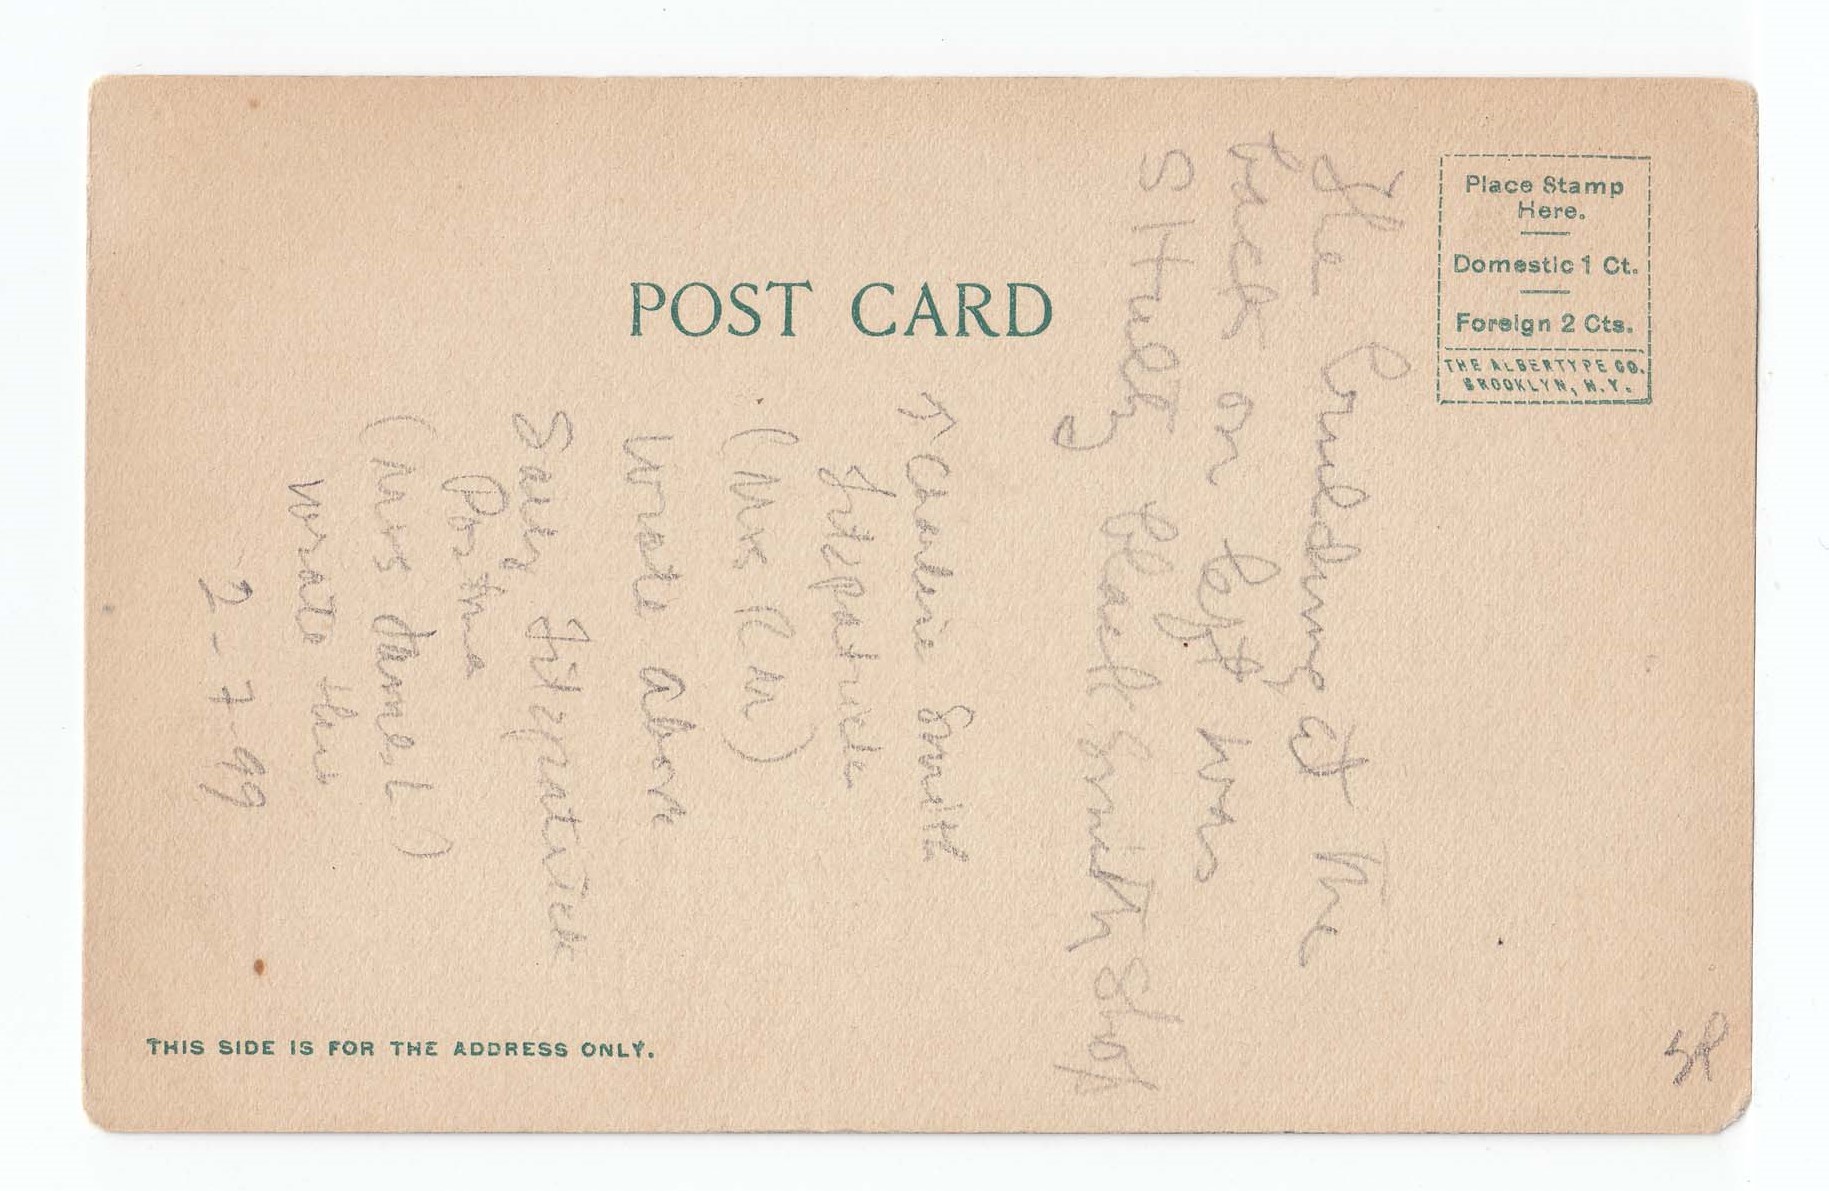 POST CARD
Place Stamp
Here.
Domestic 1 Ct.
Foreign 2 Cts.
THE ALBERTYPE CO.
BROOKLYN, N.Y.
THIS SIDE IS FOR THE ADDRESS ONLY.
The Building at the
back on left was
Black Smith Shop
↑ Charlie Smith
Fitzpatrick
(Mrs R M)
Wrote above
Sally Fitzpatrick
(Mrs Daniel)
wrote this
2-7-99